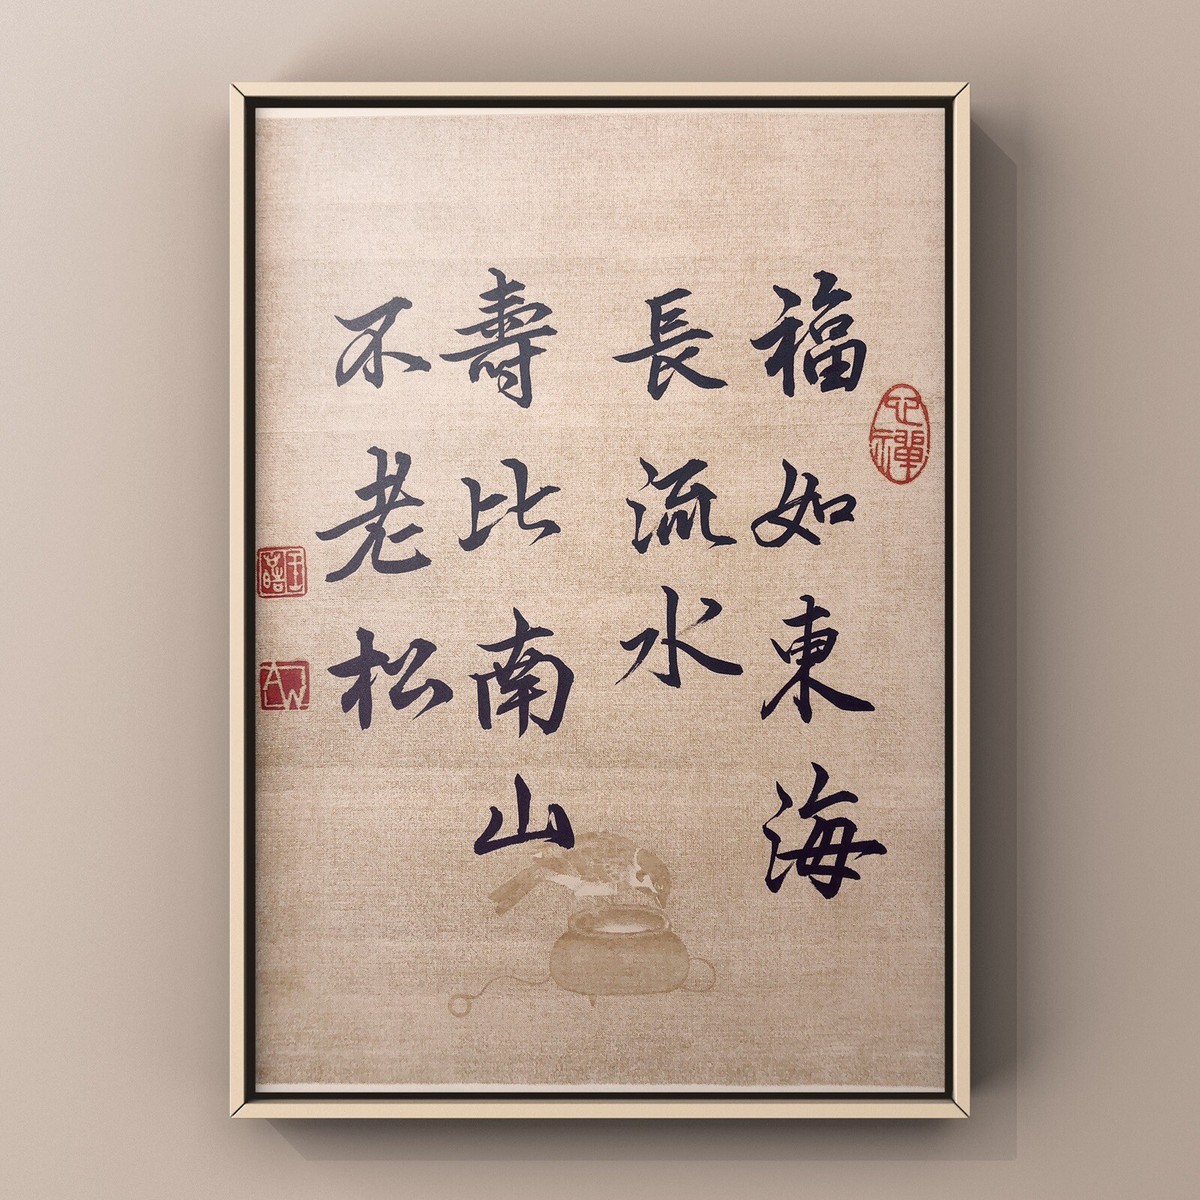 福如東海
長流水
壽比南山
不老松
心禪
AW